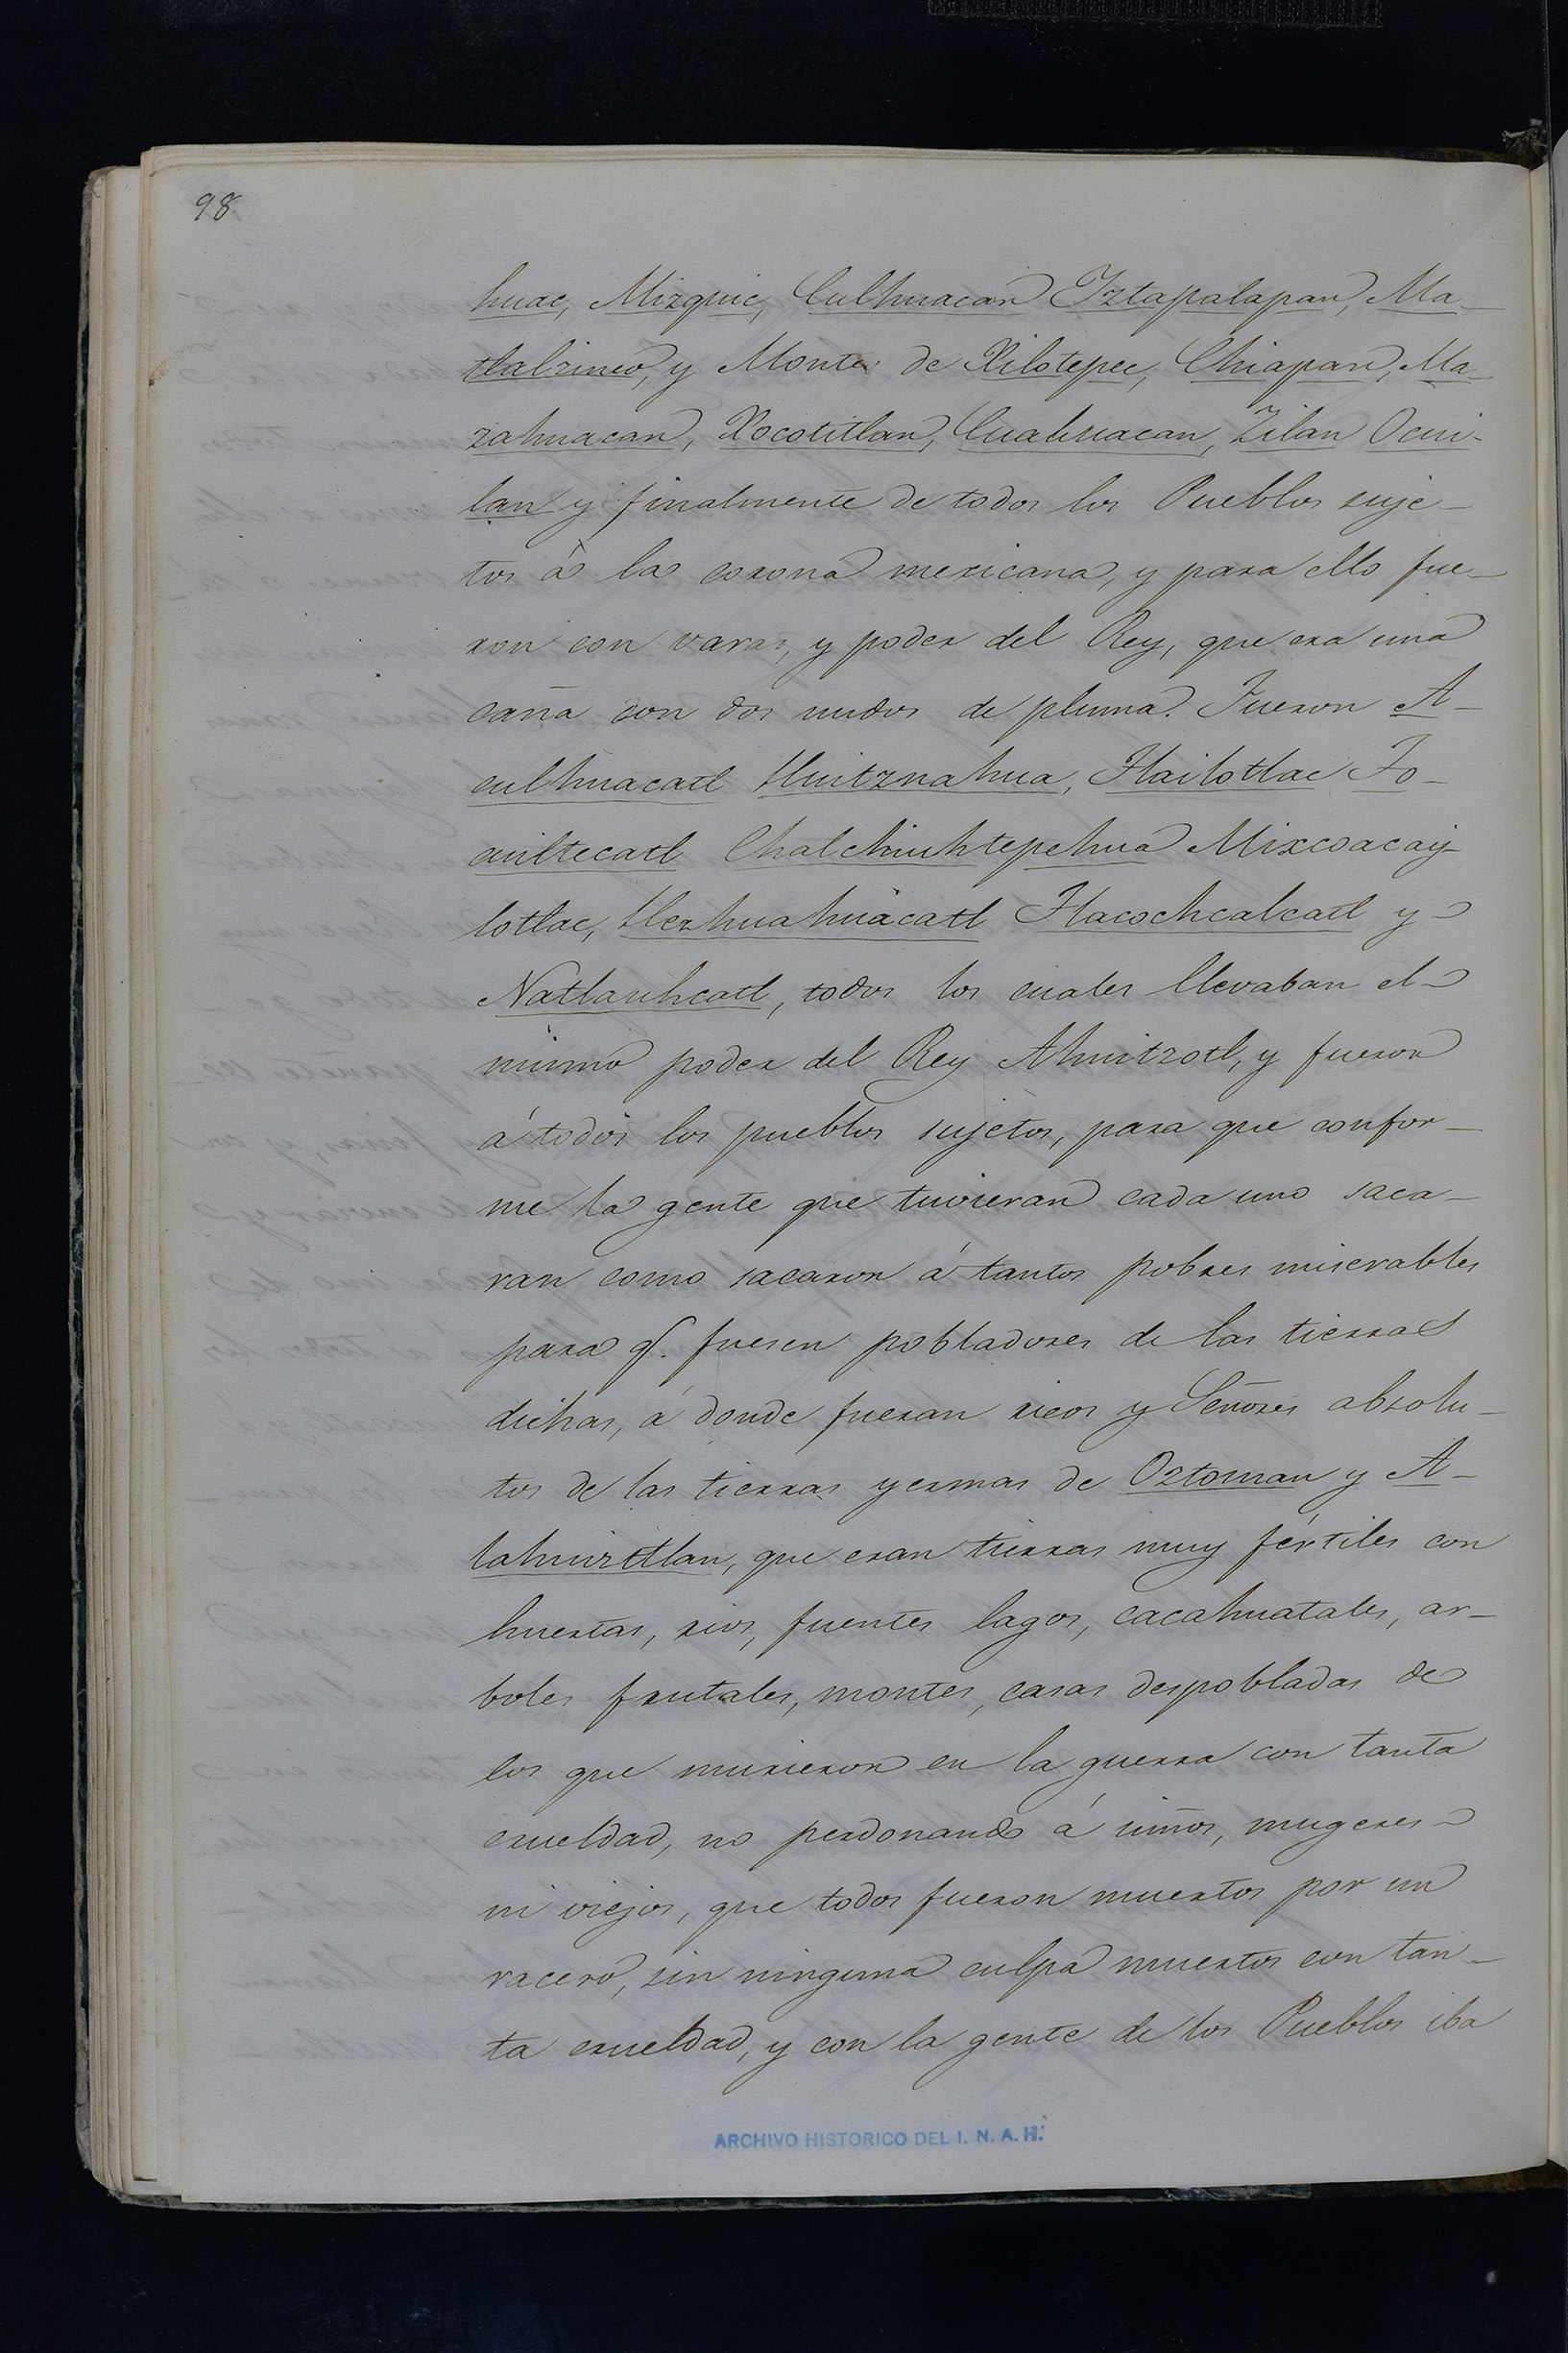 98
huac, Mizquic, Culhuacan Iztapalapan, Ma-
tlalzinco, y Montes de Xilotepec, Chiapan, Ma-
zahuacan, Xocotitlan, Cuahuacan, Zilan Ocui-
lan y finalmente de todos los Pueblos suje-
tos à la corona mexicana, y para ello fue-
ron con varas, y poder del Rey, que era una
caña con dos nudos de pluma. Fueron A-
culhuacatl Huitznahua, Tlailotlac To-
cuiltecatl Chalchiuhtepehua Mixcoacay-
lotlac, Hezhuahuacatl Tlacochcalcatl y
Natlauhcatl, todos los cuales llevaban el
mismo poder del Rey Ahuitzotl, y fueron
á todos los pueblos sujetos, para que confor-
me la gente que tuvieran cada uno saca-
ran como sacaron á tantos pobres miserables
para q. fuesen pobladores de las tierras
dichas, á donde fueran ricos y Señores absolu-
tos de las tierras yermas de Oztoman y A-
lahuiztlan, que eran tierras muy fértiles con
huertas, rios, fuentes lagos, cacahuatales, ar-
boles frutales, montes, casas despobladas de
los que murieron en la guerra con tanta
crueldad, no perdonando á niños, mugeres
ni viejos, que todos fueron muertos por un
racero, sin ninguna culpa muertos con tan-
ta crueldad, y con la gente de los Pueblos iba
ARCHIVO HISTORICO DEL I. N. A. H.